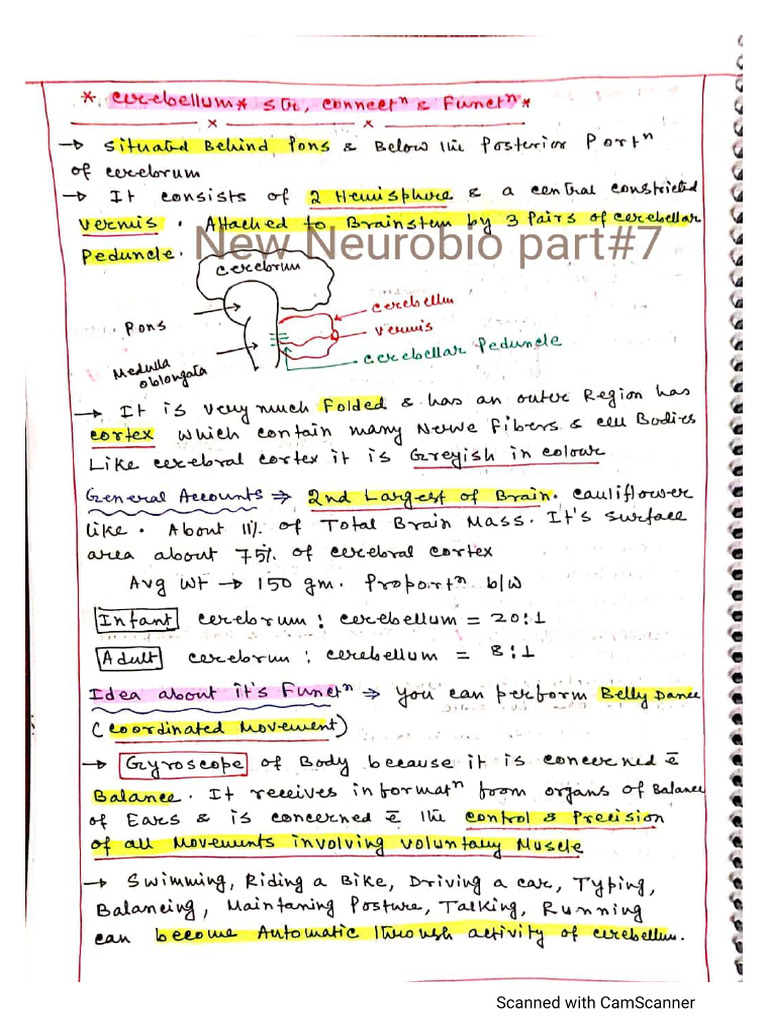 * cerebellum * str, connectⁿ & Functⁿ *
→ Situated Behind Pons & Below the Posterior Portⁿ
of cerebrum
→ It consists of 2 Hemisphere & a central constricted
vermis. Attached to Brainstem by 3 Pairs of cerebellar
Peduncle.
New Neurobio part#7
cerebrum
cerebellum
Pons
vermis
cerebellar Peduncle
Medulla
oblongata
→ It is very much Folded & has an outer Region has
cortex which contain many Nerve Fibers & cell Bodies
Like cerebral cortex it is Greyish in colour
General Accounts ⇒ 2nd Largest of Brain. cauliflower
like. About 11% of Total Brain Mass. It's surface
area about 75% of cerebral cortex
Avg wt → 150 gm. Proportⁿ b/w
Infant cerebrum : cerebellum = 20:1
Adult cerebrum : cerebellum = 8:1
Idea about it's Functⁿ ⇒ You can perform Belly Dance
(coordinated Movement)
→ Gyroscope of Body because it is concerned c̄
Balance. It receives informatⁿ from organs of Balance
of Ears & is concerned c̄ the control & Precision
of all Movements involving voluntary Muscle
→ Swimming, Riding a Bike, Driving a car, Typing,
Balancing, Maintaning Posture, Talking, Running
can become Automatic through activity of cerebellum.
Scanned with CamScanner